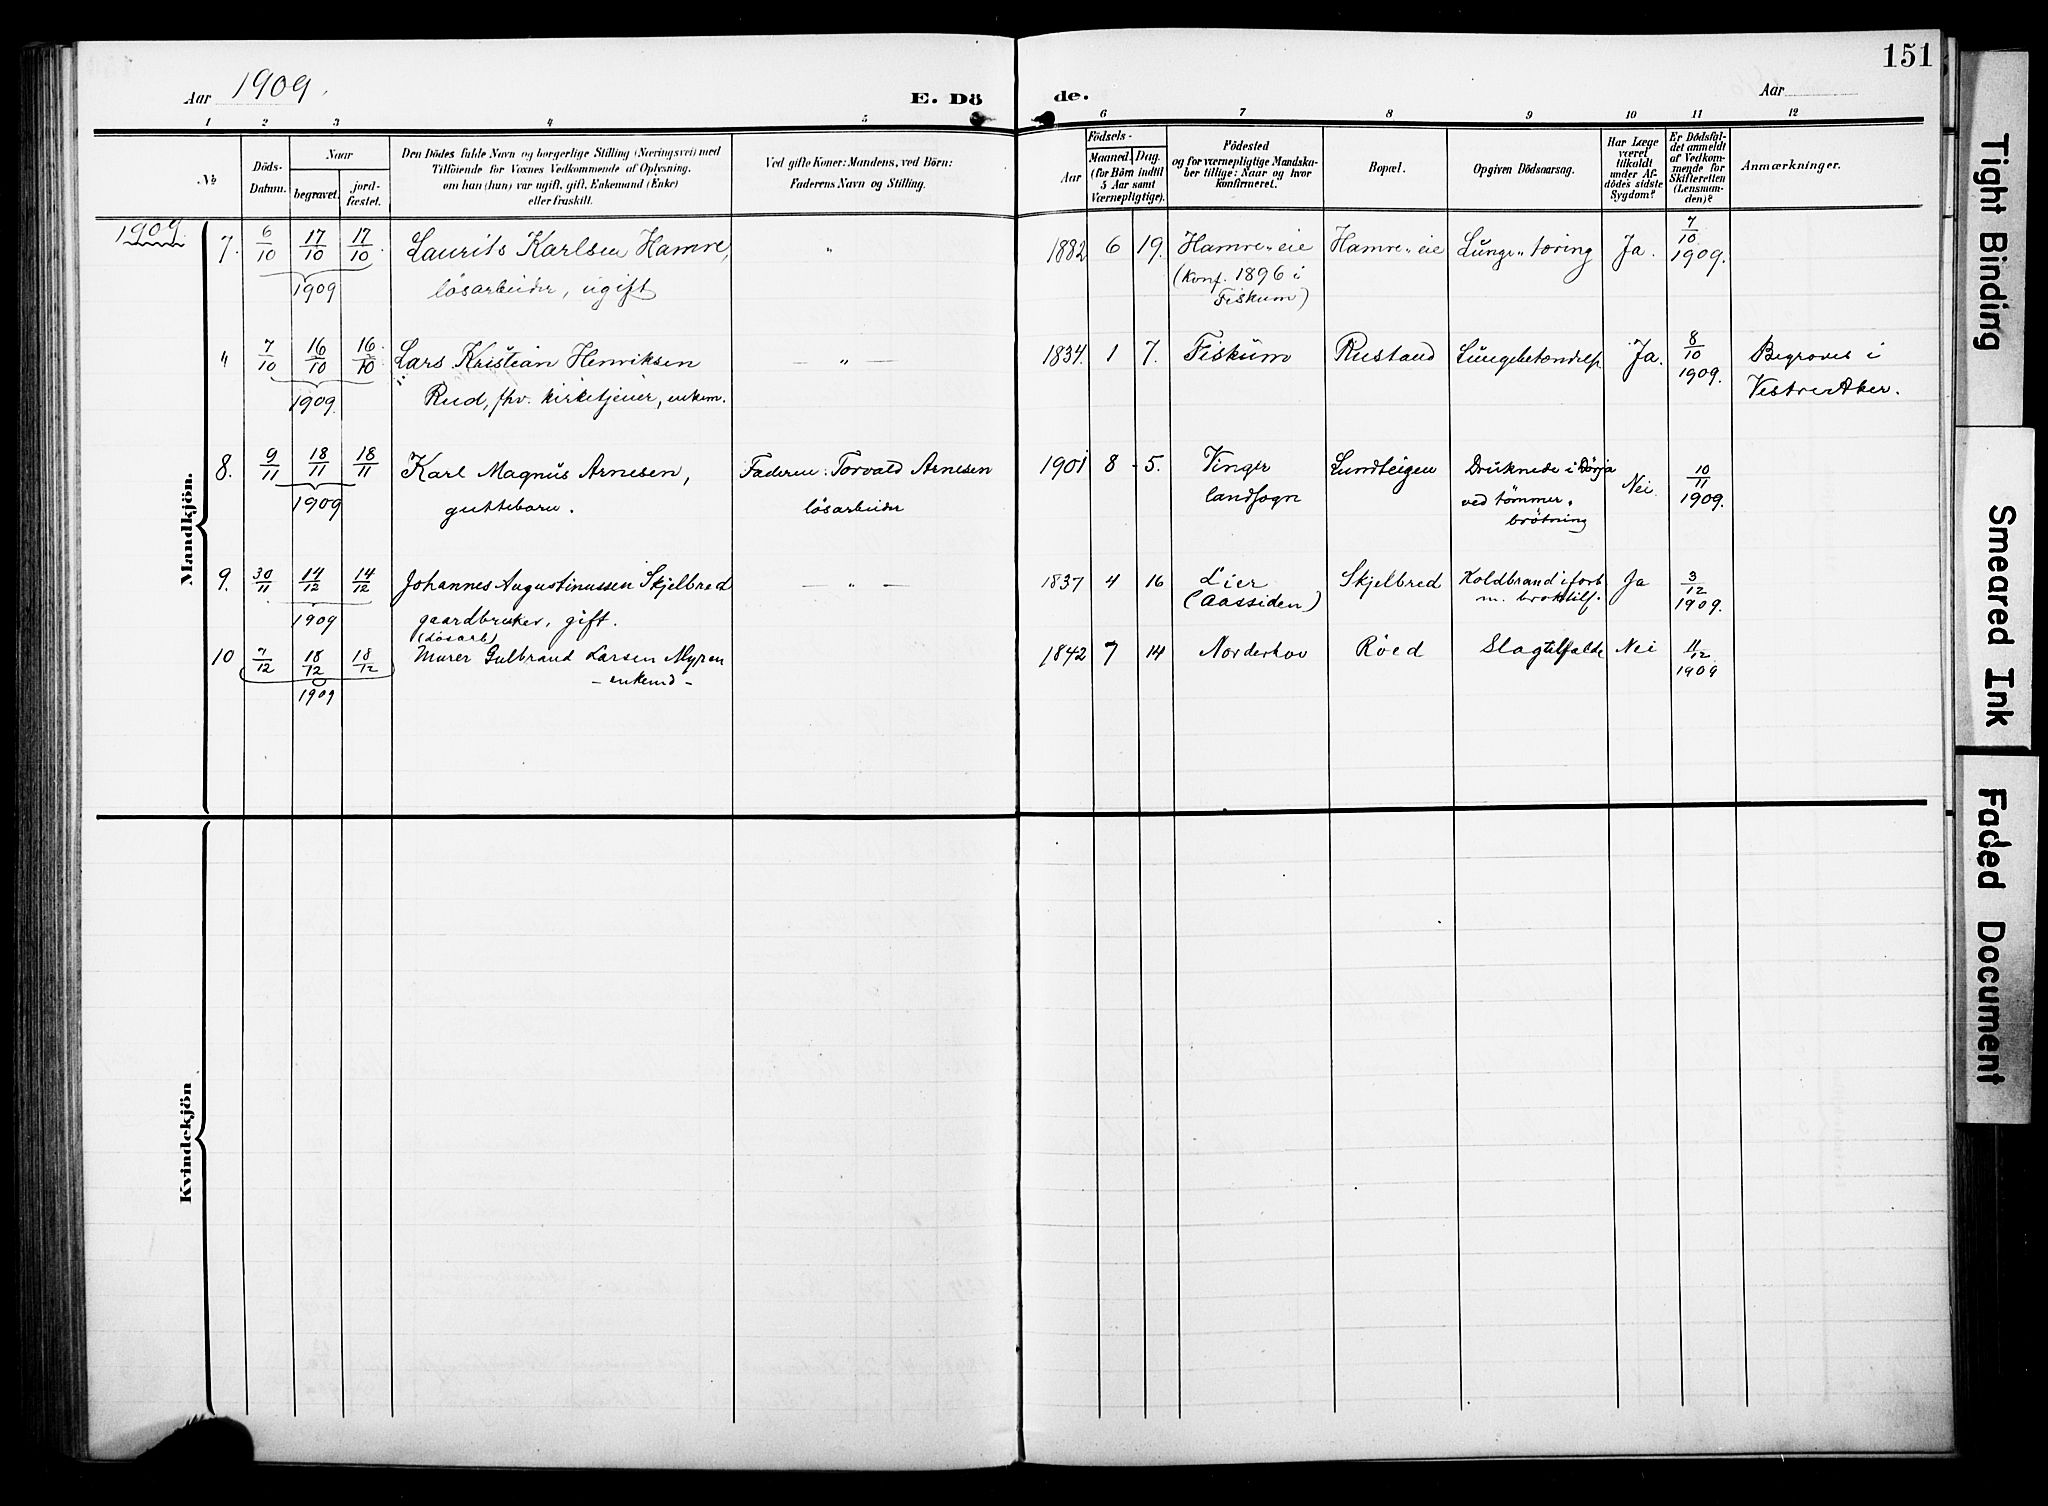 151
Aar 1909.
E. Dö de.
Aar
1 2 3 4 5 6 7 8 9 10 11 12
№
Döds-
Datum.
Naar
begravet.
jord-
fæstet.
Den Dödes fulde Navn og borgerlige Stilling (Næringsvei) med
Tilföiende for Voxnes Vedkommende af Oplysning.
om han (hun) var ugift, gift, Enkemand (Enke)
eller fraskilt.
Ved gifte Koner: Mandens, ved Börn:
Faderens Navn og Stilling.
Födsels-
Aar
Maaned. Dag.
(for Börn indtil
5 Aar samt
Værnepligtige).
Födested
og for værnepligtige Mandska-
ber tillige: Naar og hvor
konfirmeret.
Bopæl.
Opgiven Dödsaarsag.
Har Læge
været
tilkaldt
under Af-
dödes sidste
Sygdom?
Er Dödsfal-
det anmeldt
af Vedkom-
mende for
Skifteretten
(Lensman-
den)?
Anmærkninger.
1909
Mandkjön.
7. 6/10 17/10 17/10 Laurits Karlsen Hamre, " 1882 6 19. Hamre-eie Hamre-eie Lunge-tæring Ja. 7/10
1909 løsarbeider, ugift (Konf. 1896 i 1909.
Fiskum)
" 7/10 16/10 16/10 Lars Kristian Henriksen — " — 1834. 1 7. Fiskum Rustand Lungebetændelse Ja. 8/10 Begraves i
1909. Rud, fhv. kirketjener, enkem. 1909. Vestre Aker.
8. 9/11 18/11 18/11 Karl Magnus Arnesen, Faderen: Torvald Arnesen 1901 8 5. Vinger Lundteigen Druknede i Dørja Nei. 10/11
1909 guttebarn. løsarbeider landsogn ved tømmer- 1909.
brøtning
9. 30/11 14/12 14/12 Johannes Augustinussen Skjelbred — " — 1837 4 16 Lier Skjelbred Koldbrand i forb Ja 3/12
1909 gaardbruker, gift. (Aassiden) m. broktilf. 1909.
(Løsarb)
10 7/12 18/12 18/12 Murer Gulbrand Larsen Myren 1842 7 14 Norderhov Røed Slagtilfælde Nei 11/12
1909 - enkemd - 1909
Kvindekjön
Tight Binding
Smeared Ink
Faded Document